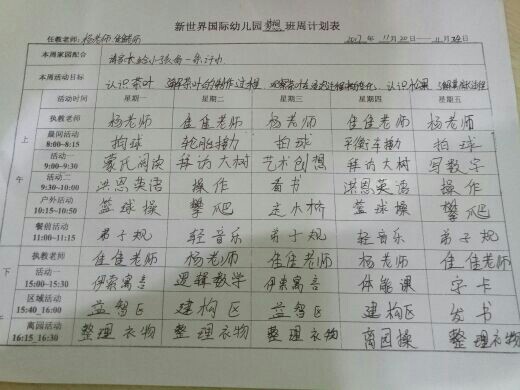 新世界国际幼儿园梦想班周计划表
任教老师: 杨老师 佳佳老师 2017年 11月20日——11月24日
本周家园配合
本周活动目标 认识茶叶 了解茶叶的制作过程
活动时间 星期一 星期二 星期三 星期四 星期五
上午
执教老师 杨老师 佳佳老师 杨老师 佳佳老师 杨老师
晨间活动 拍球 轮胎接力 拍球 平衡车接力 拍球
8:00~8:15
活动一 蒙氏阅读 拜访大树 艺术创想 拜访大树 写数字
9:00~9:30
活动二 洪恩英语 操作 看书 洪恩英语 操作
9:30~10:00
户外活动 篮球操 攀爬 走小桥 篮球操 攀爬
10:15~10:50
餐前活动 弟子规 轻音乐 弟子规 轻音乐 弟子规
11:00~11:15
下
执教老师 佳佳老师 杨老师 佳佳老师 杨老师 佳佳老师
活动一 伊索寓言 逻辑数学 伊索寓言 体能课 字卡
15:00~15:30
区域活动 益智区 建构区 益智区 建构区 发书
15:40_16:00
离园活动 整理衣物 整理衣物 整理衣物 离园操 整理衣物
16:15_16:30